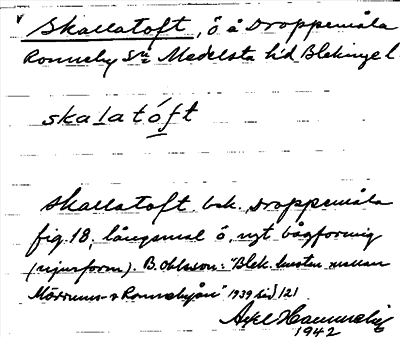 Skallatoft, ö å Droppemåla
Ronneby Sn Medelsta hd Blekinge l.
skalatóft
Skallatoft bek. Droppemåla
fig. 18, långsmal ö, nyt bågformig
(njurform). B. Ohlsson: "Blek. kusten mellan
Mörrumsån o Ronnebyån" 1939 sid 121
Axel
1942